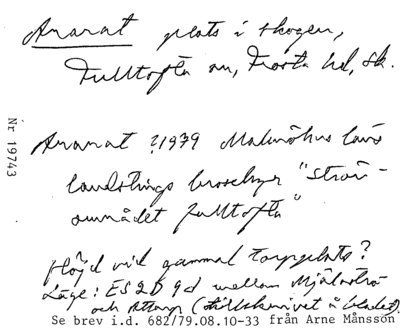 Ararat plats i skogen,
Fulltofta sn, Frosta hd, Sk.
Ararat ?1979 Malmöhus läns
landstings broschyr "Ströv-
området Fulltofta"
Höjd vid gammal torpplats?
Läge: ES2D 9d mellan
och (tillskrivet å bladet).
Se brev i.d. 682/79.08.10-33 från Arne Månsson
Nr 19743